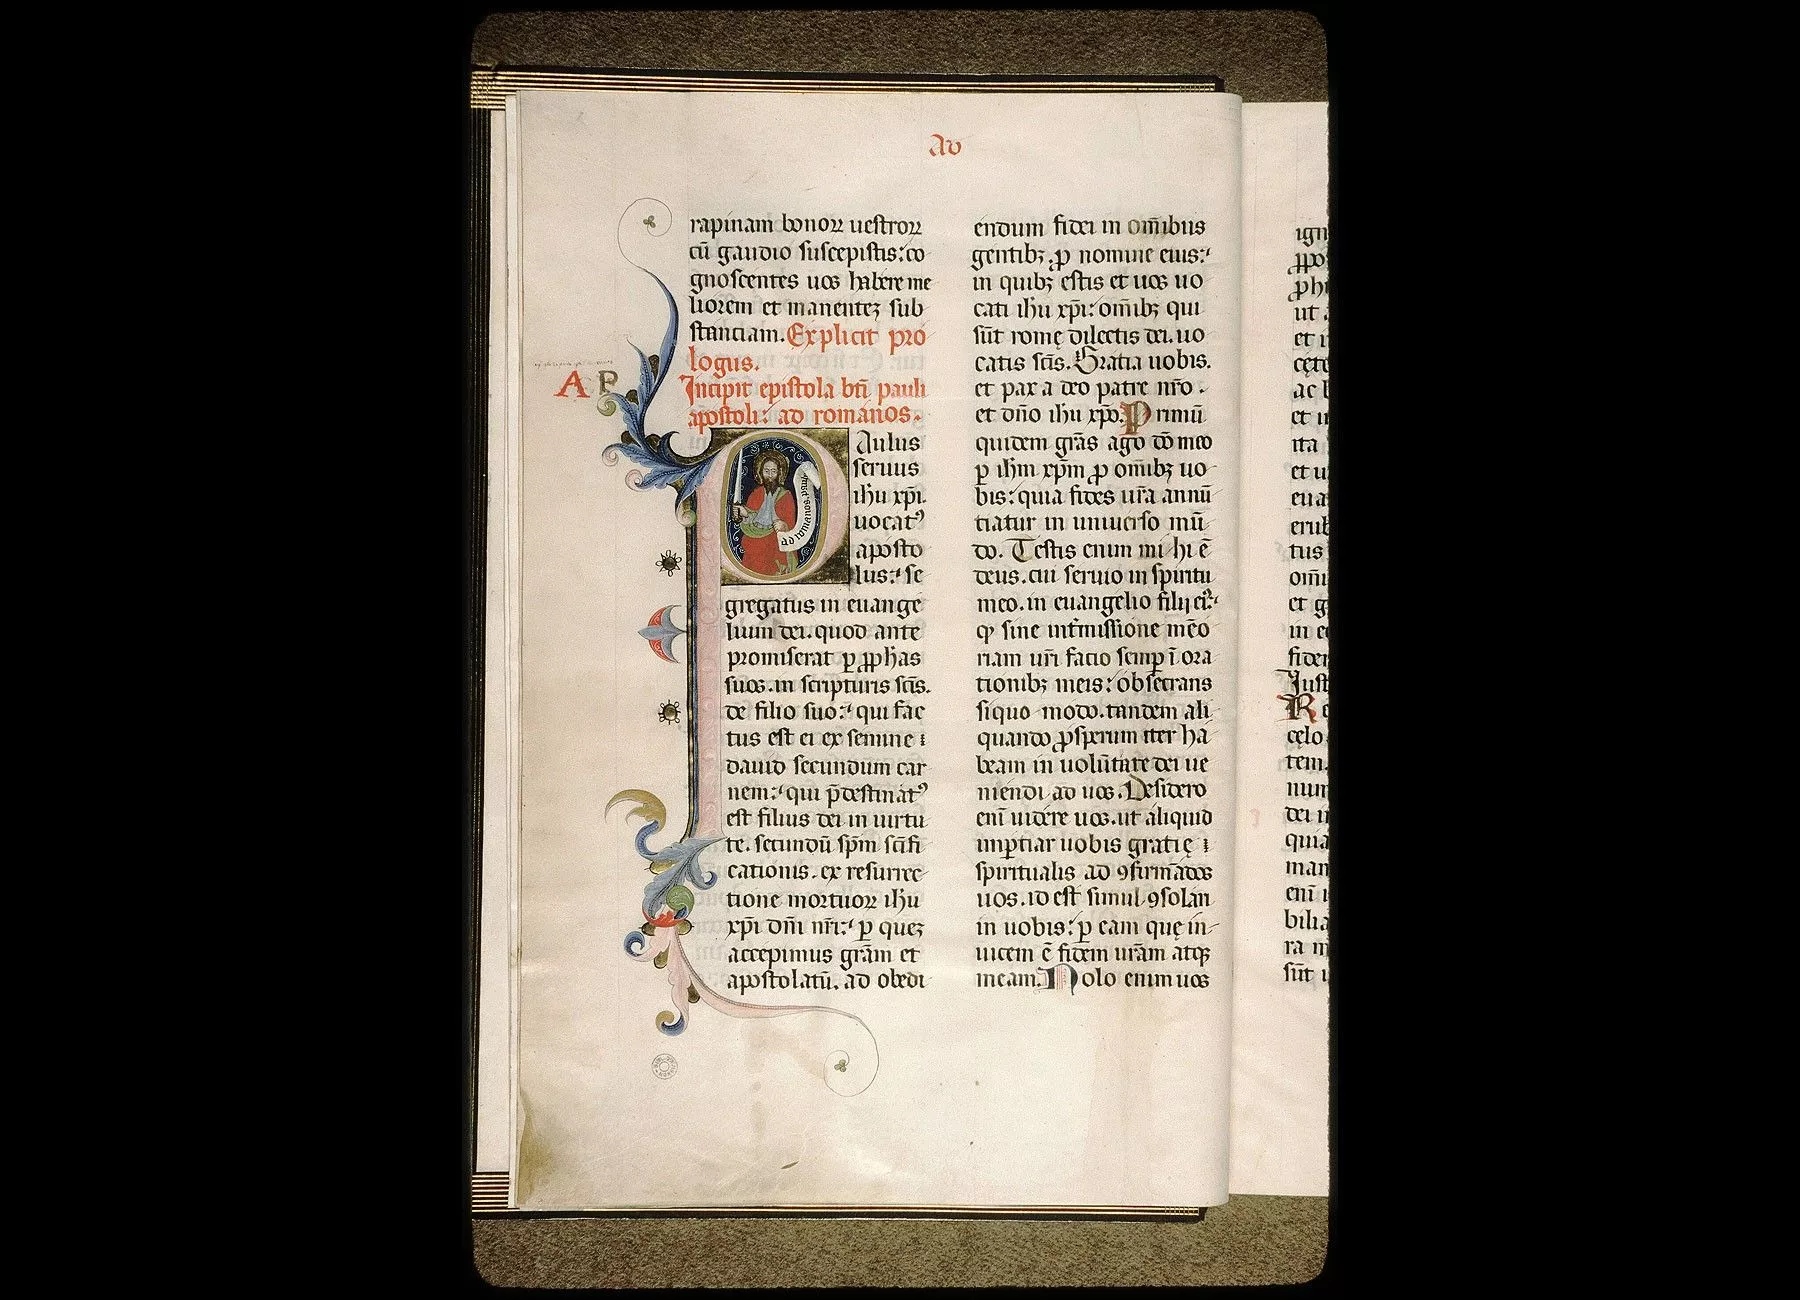 Ad
rapinam bonoꝝ uestroꝝ
cū gaudio suscepistis: co
gnoscentes uos habere me
liorem et manentez sub
stanciam. Explicit pro
logus.
Incipit epistola btī pauli
apostoli: ad romanos.
A P
PAulus
seruus
ihū xp̄i.
uocatꝰ
aposto
lus: se
ad romanos
gregatus in euange
lium dei. quod ante
promiserat ꝑ ꝓphās
suos. in scripturis scīs.
de filio suo: qui fac
tus est ei ex semine
dauid secundum car
nem: qui p̄destinatꝰ
est filius dei in uirtu
te. secundū sp̄m scīfi
cationis. ex resurrec
tione mortuoꝝ ihū
xp̄i dn̄i nr̄i: ꝑ quez
accepimus grām et
apostolatū. ad obedi
endum fidei in om̄ibus
gentibꝫ ꝓ nomine eius:
in quibꝫ estis et uos uo
cati ihū xp̄i: om̄ibꝫ qui
sūt romę dilectis dei. uo
catis scīs. Gratia uobis.
et pax a deo patre nr̄o.
et dn̄o ihū xp̄o. Primū
quidem grās ago dō meo
ꝑ ihm̄ xp̄m ꝓ om̄ibꝫ uo
bis: quia fides ur̄a annū
tiatur in uniuerso mū
do. Testis enim mihi ē
deus. cui seruio in spiritu
meo. in euangelio filij eiꝰ:
ꝙ sine int̄missione mēo
riam ur̄i facio semꝑ ī ora
tionibꝫ meis: obsecrans
si quo modo. tandem ali
quando ꝓsperum iter ha
beam in uolūtate dei ue
niendi ad uos. Desidero
enī uidere uos. ut aliquid
imꝑtiar uobis gratię
spiritualis ad ꝯfirmādos
uos. id est simul ꝯsolari
in uobis: ꝑ eam quę in
uicem ē fidem ur̄am atqꝫ
meam. Nolo enim uos